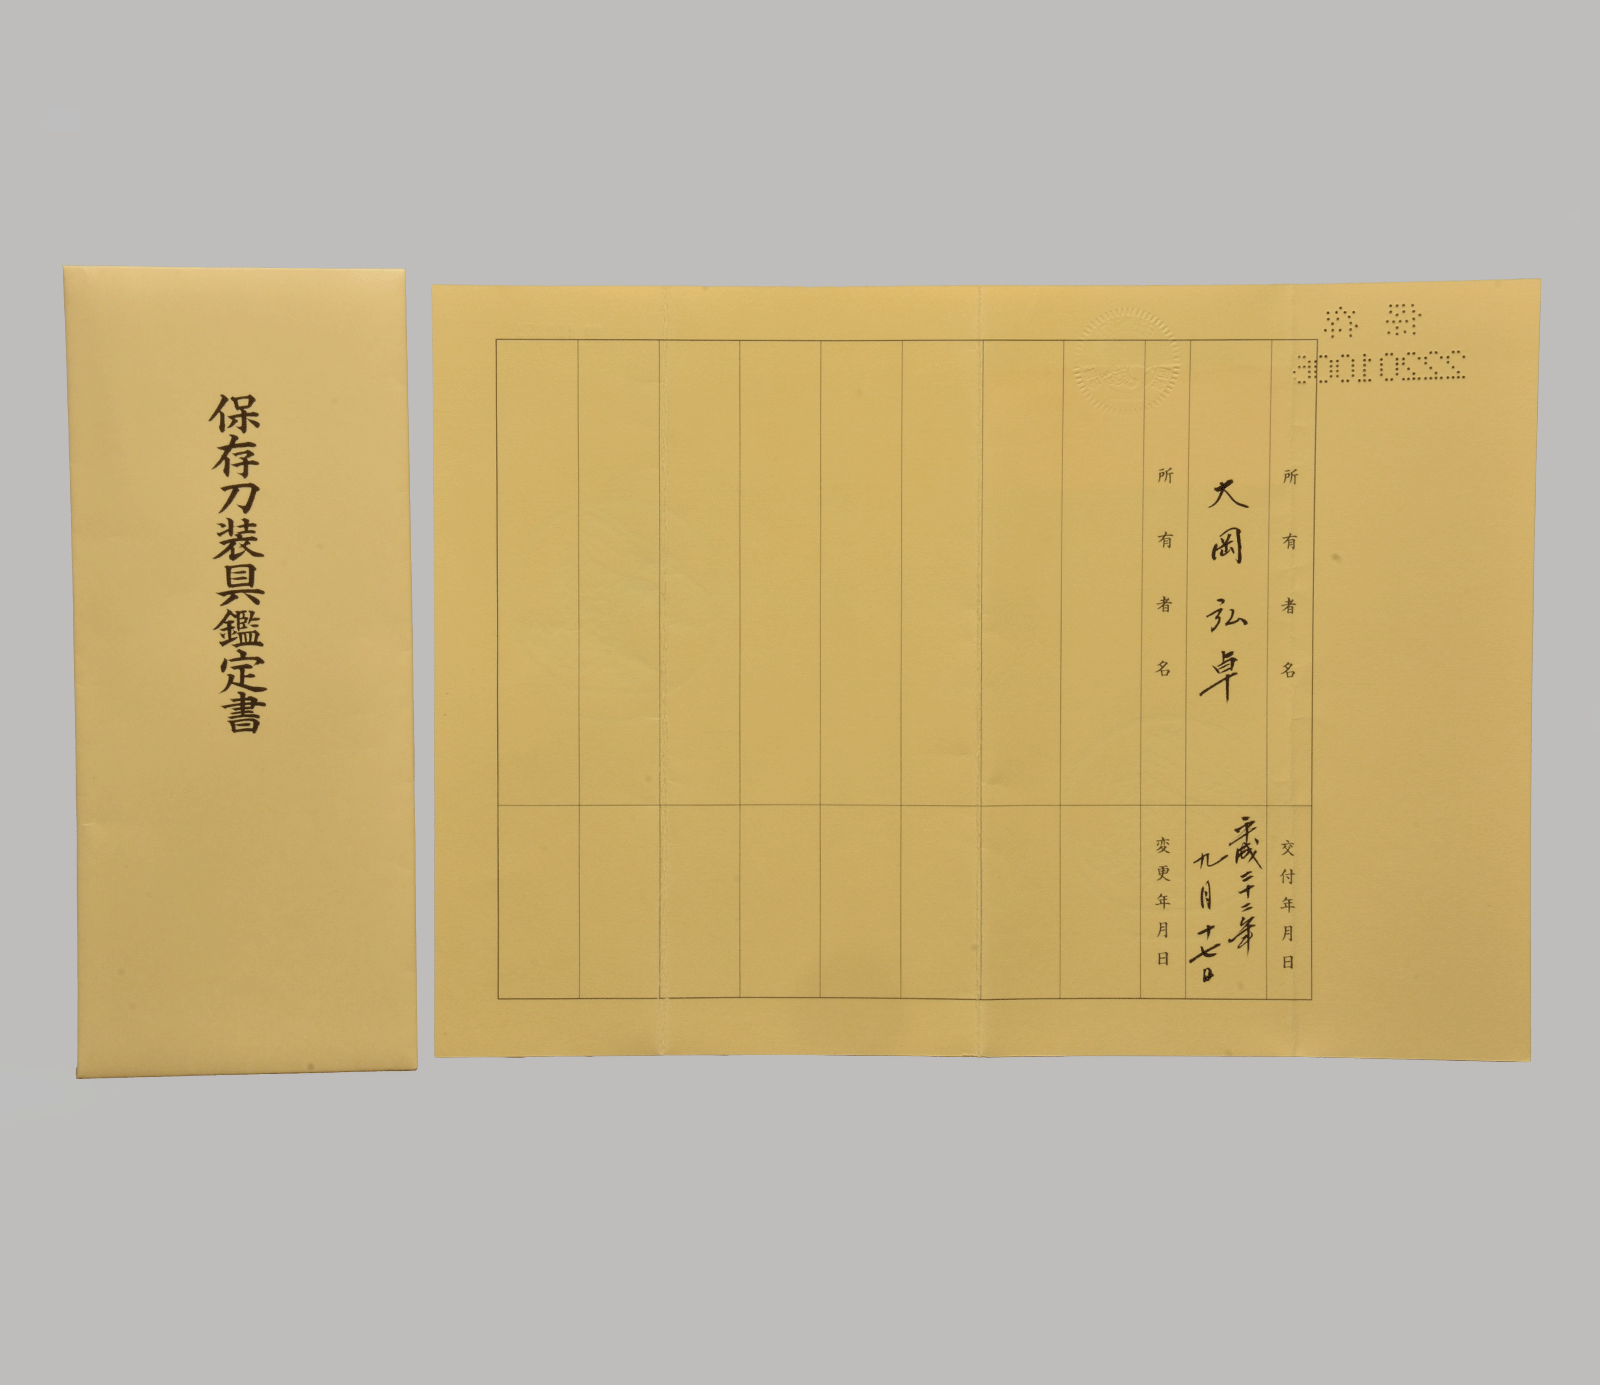 保存刀装具鑑定書
保存
所有者名
交付年月日
大岡弘卓
平成二十二年
九月十七日
所有者名
変更年月日